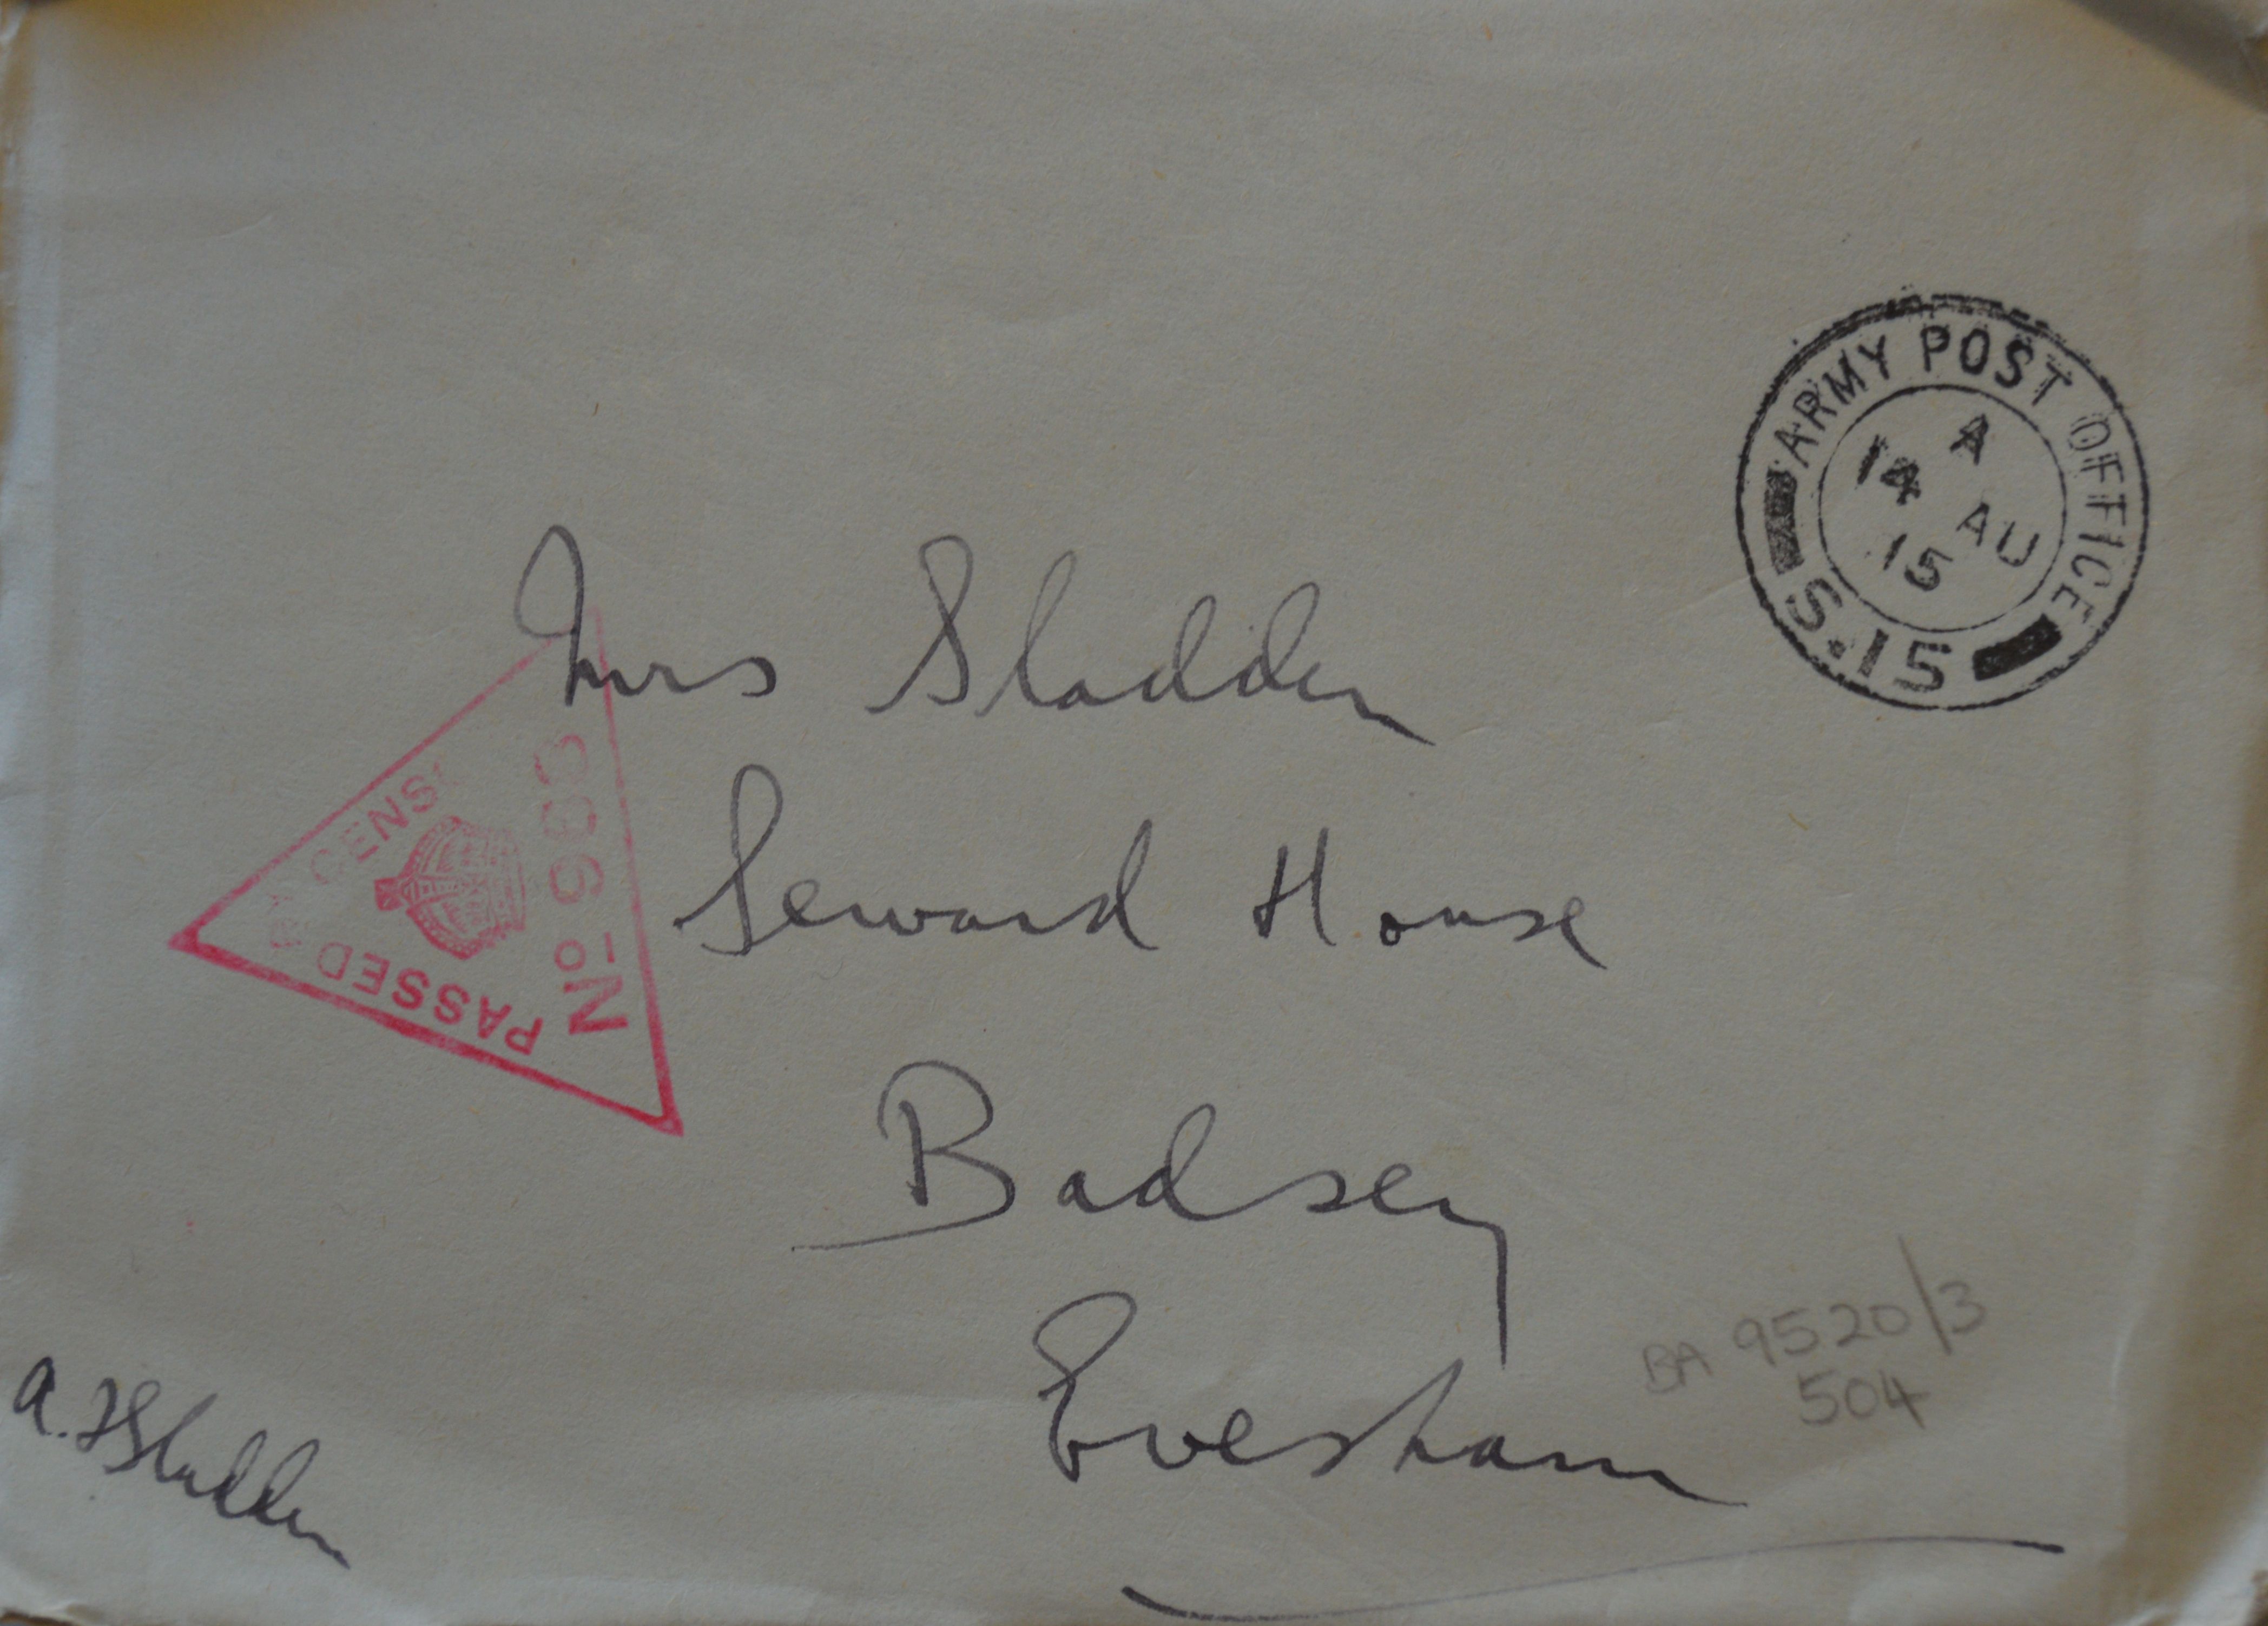 ARMY POST OFFICE
A
14 AU
15
S.15
Mrs Sladden
Seward House
Badsey
Evesham
PASSED BY
No
BA 9520/3
504
A. F Sladden